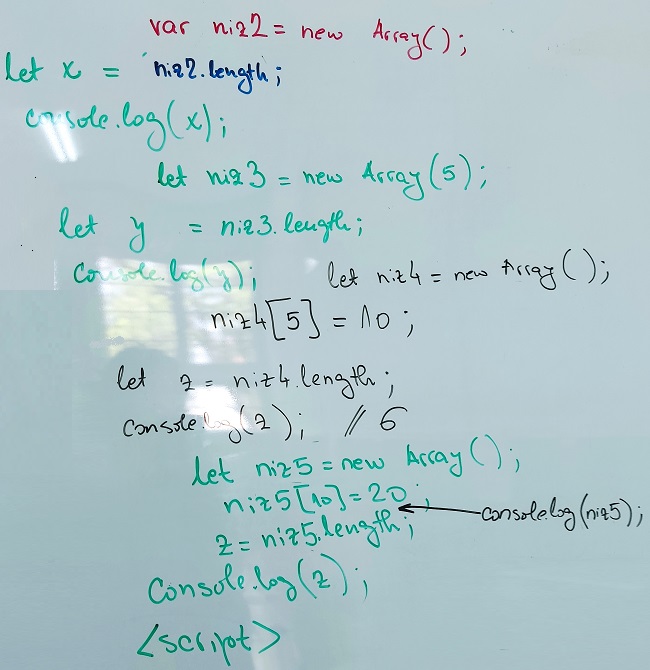 var niz2 = new Array();
let x = niz2.length;
console.log(x);
let niz3 = new Array(5);
let y = niz3.length;
console.log(y);
let niz4 = new Array();
niz4[5] = 10;
let z = niz4.length;
console.log(z); // 6
let niz5 = new Array();
niz5[10] = 20;
console.log(niz5);
z = niz5.length;
console.log(z);
<script>